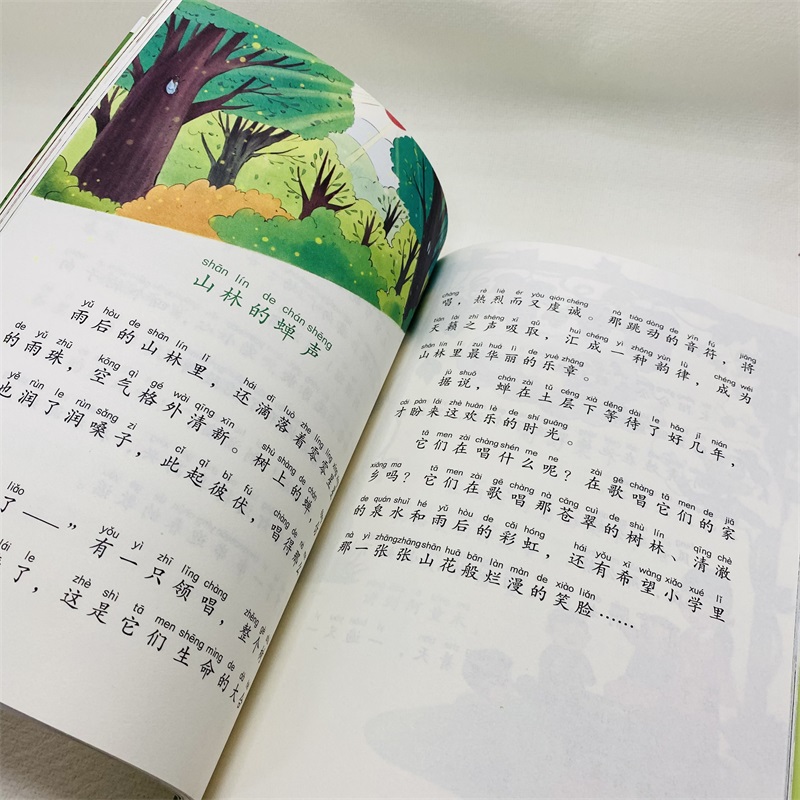 shān lín de chán shēng
山林的蝉声
yǔ hòu de shān lín lǐ hái dī luò zhe líng líng
雨后的山林里，还滴落着零零
de yǔ zhū kōng qì gé wài qīng xīn shù shàng de chán
的雨珠，空气格外清新。树上的蝉，
yě rùn le rùn sǎng zi cǐ qǐ bǐ fú chàng de
也润了润嗓子，此起彼伏，唱得那
liǎo yǒu yì zhī lǐng chàng zhěng gè
了——”有一只领唱，整个
lái le zhè shì tā men shēng mìng de dà
来了，这是它们生命的大
chàng rè liè ér yòu qián chéng nà tiào dòng de yīn fú jiāng
唱，热烈而又虔诚。那跳动的音符，将
tiān lài zhī shēng xī qǔ huì chéng yì zhǒng yùn lǜ chéng wéi
天籁之声吸取，汇成一种韵律，成为
shān lín lǐ zuì huá lì de yuè zhāng
山林里最华丽的乐章。
jù shuō chán zài tǔ céng xià děng dài le hǎo jǐ nián
据说，蝉在土层下等待了好几年，
cái pàn lái zhè huān lè de shí guāng
才盼来这欢乐的时光。
tā men zài chàng shén me ne zài gē chàng tā men de jiā
它们在唱什么呢？在歌唱它们的家
xiāng ma tā men zài gē chàng nà cāng cuì de shù lín qīng chè
乡吗？它们在歌唱那苍翠的树林、清澈
de quán shuǐ hé yǔ hòu de cǎi hóng hái yǒu xī wàng xiǎo xué lǐ
的泉水和雨后的彩虹，还有希望小学里
nà yì zhāng zhāng shān huā bān làn màn de xiào liǎn
那一张张山花般烂漫的笑脸……